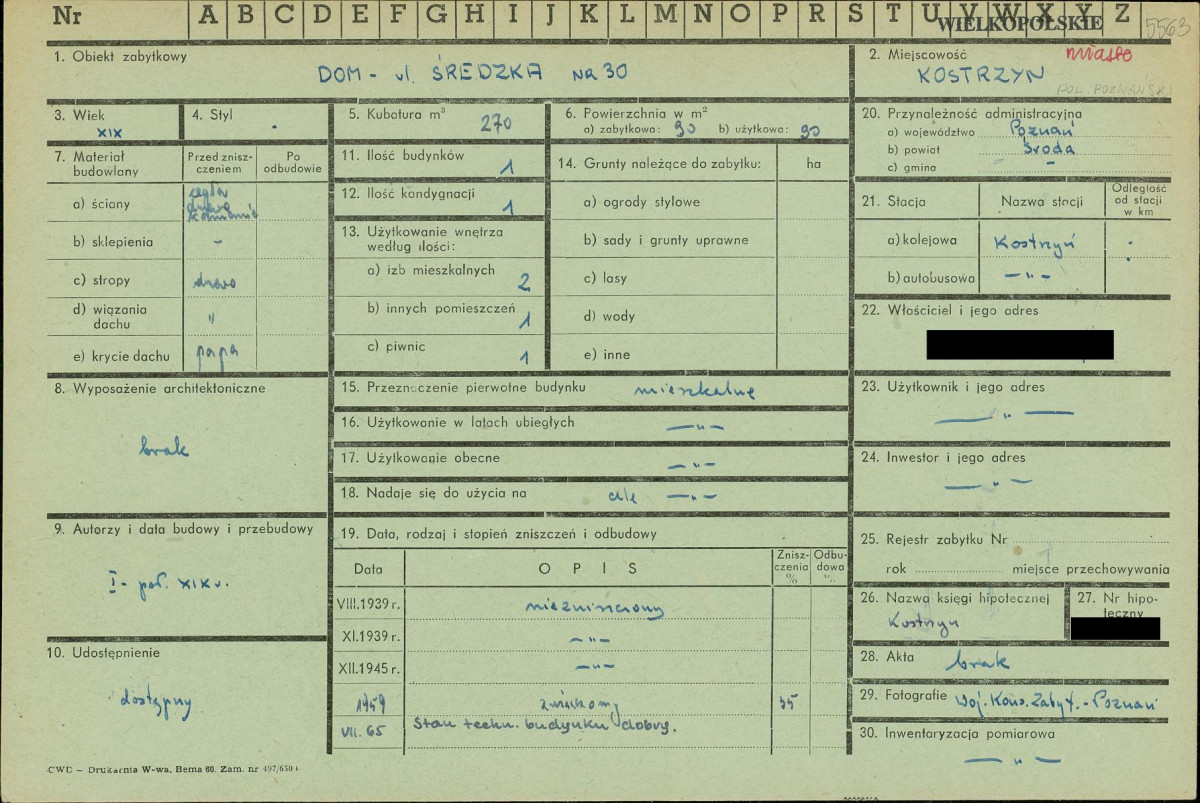 Nr A B C D E F G H I J K L M N O P R S T U V W X Y Z
WIELKOPOLSKIE
5563
1. Obiekt zabytkowy
DOM - ul. ŚREDZKA NR 30
2. Miejscowość
miasto
KOSTRZYN
POW. POZNAŃSKI
3. Wiek
XIX
4. Styl
5. Kubatura m³
270
6. Powierzchnia w m²
a) zabytkowa: 90 b) użytkowa: 90
7. Materiał budowlany
Przed zniszczeniem
Po odbudowie
a) ściany
cegła
drewno
kamienie
b) sklepienia -
c) stropy drewno
d) wiązania dachu "
e) krycie dachu papa
8. Wyposażenie architektoniczne
brak
9. Autorzy i data budowy i przebudowy
I - poł. XIX w.
10. Udostępnienie
dostępny
11. Ilość budynków 1
12. Ilość kondygnacji 1
13. Użytkowanie wnętrza według ilości:
a) izb mieszkalnych 2
b) innych pomieszczeń 1
c) piwnic 1
14. Grunty należące do zabytku: ha
a) ogrody stylowe
b) sady i grunty uprawne
c) lasy
d) wody
e) inne
15. Przeznaczenie pierwotne budynku mieszkalne
16. Użytkowanie w latach ubiegłych — " —
17. Użytkowanie obecne — " —
18. Nadaje się do użycia na cele — " —
19. Data, rodzaj i stopień zniszczeń i odbudowy
Data
OPIS
Zniszczenia %
Odbudowa %
VIII.1939 r. niezniszczony
XI.1939 r. — " —
XII.1945 r. — " —
1959 zniszczony 35
VII. 65 Stan techn. budynku dobry.
20. Przynależność administracyjna
a) województwo Poznań
b) powiat Środa
c) gmina -
21. Stacja
Nazwa stacji
Odległość od stacji w km
a) kolejowa Kostrzyń
b) autobusowa — " —
22. Właściciel i jego adres
23. Użytkownik i jego adres
— " —
24. Inwestor i jego adres
— " —
25. Rejestr zabytku Nr
rok miejsce przechowywania
26. Nazwa księgi hipotecznej
Kostrzyn
27. Nr hipoteczny
28. Akta brak
29. Fotografie Woj. Kons. Zabyt. - Poznań
30. Inwentaryzacja pomiarowa
— " —
CWD – Drukarnia W-wa, Bema 60. Zam. nr 497/650